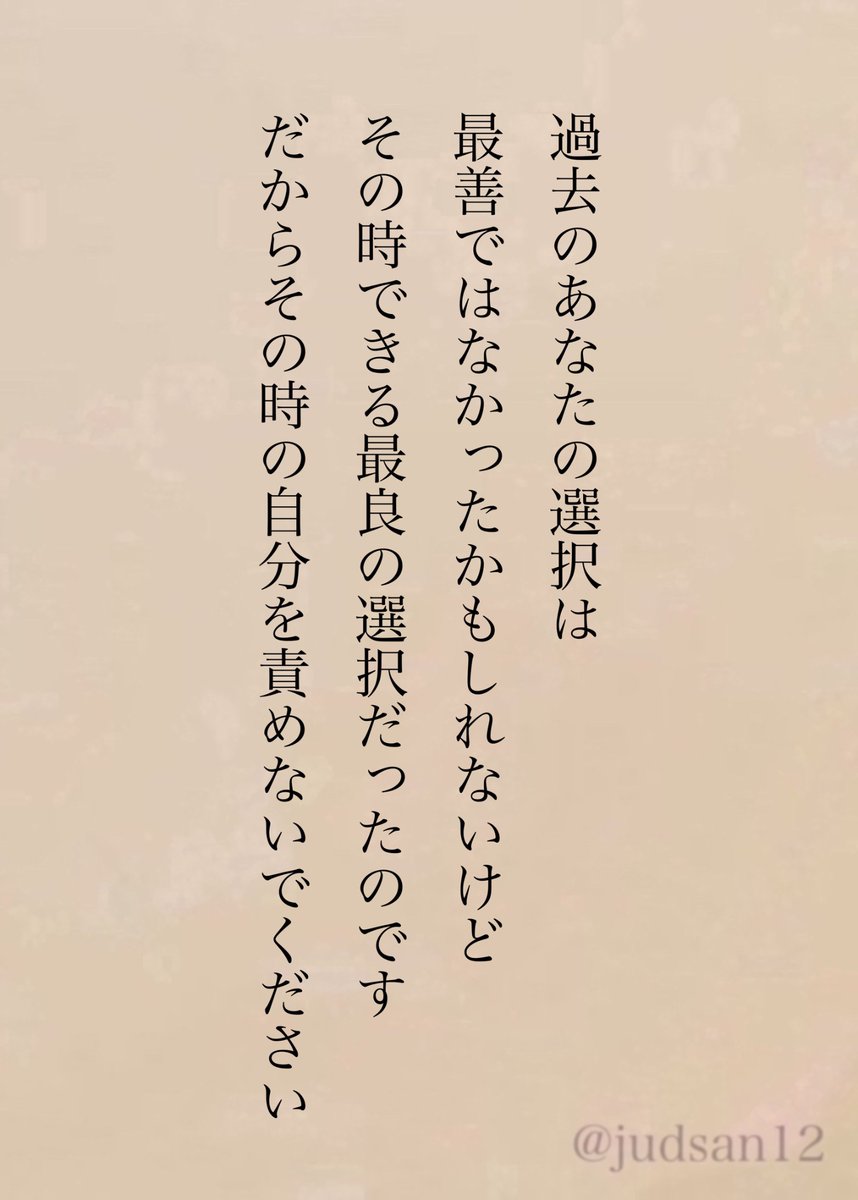 過去のあなたの選択は
最善ではなかったかもしれないけど
その時できる最良の選択だったのです
だからその時の自分を責めないでください
@judsan12